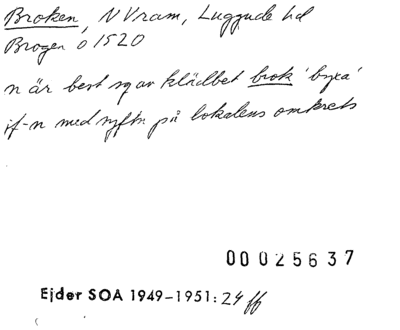 Broken, N Vram, Luggude hd
Brogen ö 1520
n är best sg av klädbet brok 'byxa'
jf-n med syftn på lokalens omkrets
00025637
Ejder SOA 1949-1951: 24 ff